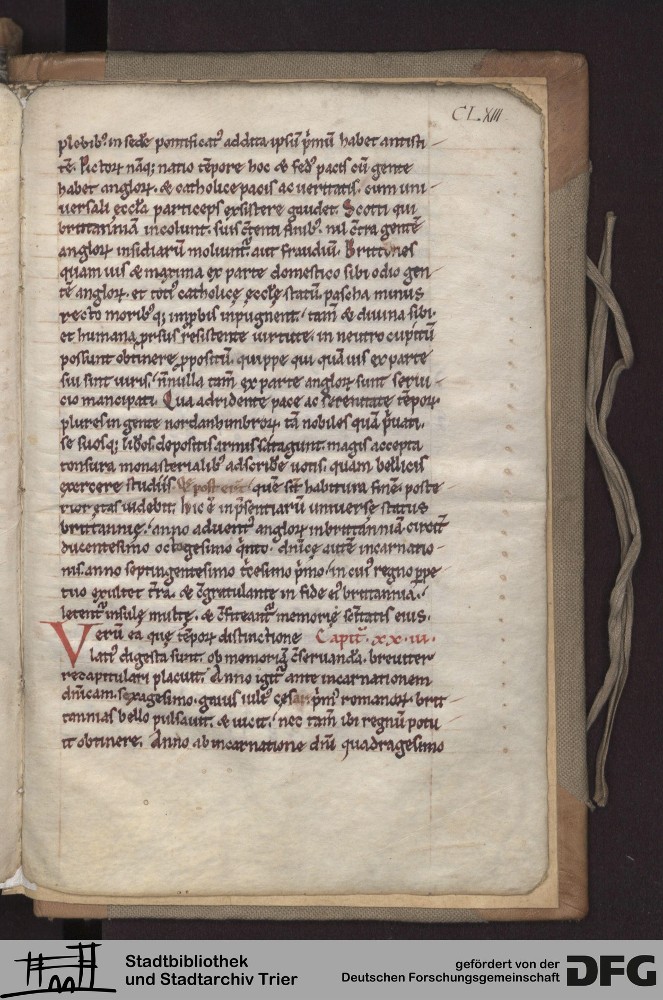 CLXIII
plebib; in sede pontificat' addita ipsū p̄mū habet antisti
tē. Pictoꝝ nāq; natio tēpore hoc & fed' pacis cū gente
habet angloꝝ. & catholice pacis ac veritatis. cum uni
versali eccl̄a particeps existere gaudet. Scotti qui
brittanniā incolunt. suis c̄tenti finib;. nil c̄tra gentē
angloꝝ insidiarū moliunt̄. aut fraudiū. Brittones
quamuis & maxima ex parte domestico sibi odio gen
tē angloꝝ. et toti' catholicę ecclę statū. pascha minus
recto morib'q; imp̄bis inpugnent. tam̄ & divina sibi.
et humana prsus resistente virtute. in neutro cupitū
possunt obtinere p̱positū. quippe qui quāuis ex parte
sui sint iuris. n̄nulla tam̄ ex parte angloꝝ sunt servi
cio mancipati. Qua adridente pace ac serenitate tēpoꝝ
plures in gente nordanhimbroꝝ. tā nobiles quā p̄uati.
se suosq; lib'os depositis armis satagunt. magis accepta
tonsura monasterialib; adscribe votis. quam bellicis
exercere studiis. quę sit habitura finē. poste
rior ętas videbit. Hic ē inp̄sentiarū universe status
brittannię. anno advent' angloꝝ in brittanniā. circit̄
ducentesimo octogesimo q̄nto. dn̄icę autē incarnatio
nis. anno septingentesimo t̄cesimo p̄mo. in cui' regno p̱pe
tuo exultet t̄ra. & c̄gratulante in fide ei' britannia.
letent̄ insulę multę. & c̄fiteant̄ memorię sc̄itatis eius.
Verū ea quę tēpoꝝ distinctione Capit̄. xx. iiii.
lati' digesta sunt. ob memoriā c̄servandā. breviter
recapitulari placuit. Anno igit̄ ante incarnationem
dn̄icam. sexagesimo. gaius iuli' cesar p̄m' romanoꝝ. brit
tannias bello pulsavit. & vicit. nec tam̄ ibi regnū potu
it obtinere. Anno ab incarnatione dn̄i quadragesimo
Stadtbibliothek
und Stadtarchiv Trier
gefördert von der
Deutschen Forschungsgemeinschaft
DFG